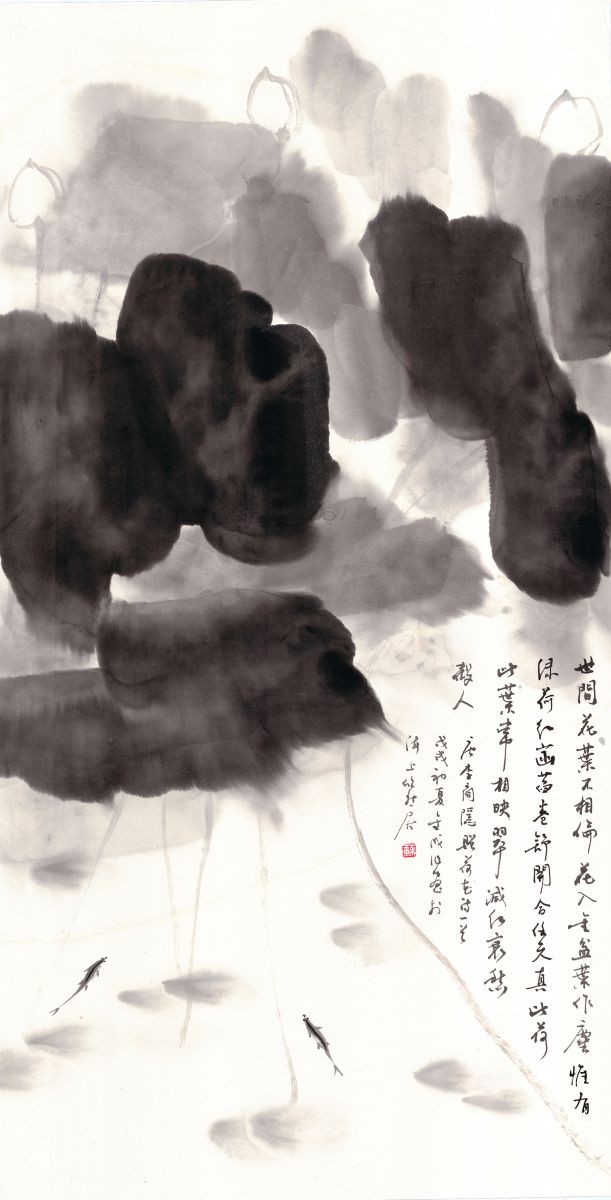 世間花葉不相倫花入金盆葉作塵惟有
绿荷红菡萏卷舒開合任天真此荷
此葉常相映翠減红衰愁
殺人
唐李商隱贈荷花诗一首
戊戌初夏金成画於
海上居